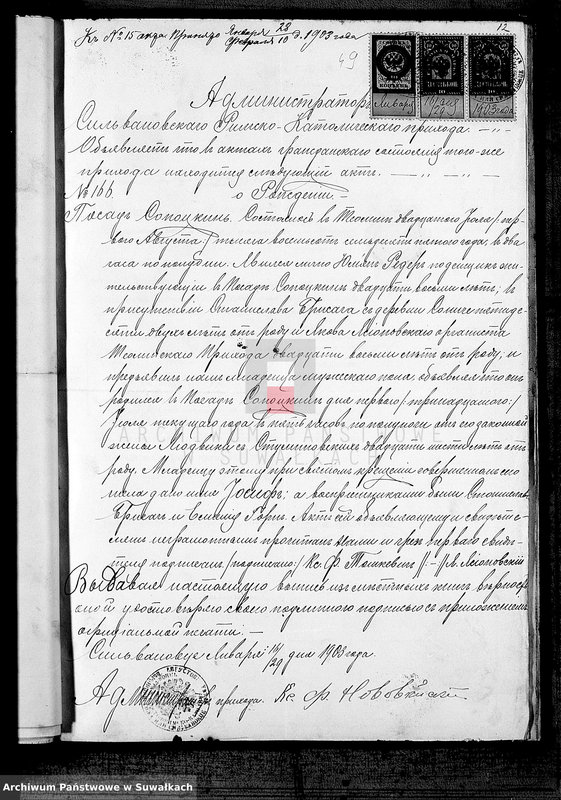 Къ № 15 акта
Января 28
Февраля 10 д. 1903 года
12
49
Января
1903 года
Администраторъ
Сильвановскаго Римско-Католическаго прихода.
Объявляетъ что въ актахъ гражданскаго состоянія того-же
прихода находится слѣдующій актъ.
№ 166. о Рожденіи.
Посадъ Сопоцкинъ. Состоялось въ Теолинѣ двадцатаго Іюля /пер-
ваго Августа/ тысяча восемьсотъ семьдесятъ пятаго года, въ два
часа по полудни. Явился лично Редеръ поденщикъ жи-
тельствующій въ Посадѣ Сопоцкинѣ двадцати восьми лѣтъ, въ
присутствіи Станислава изъ деревни пятиде-
сяти двухъ лѣтъ отъ роду и органиста
Теолинскаго Прихода двадцати восьми лѣтъ отъ роду, и
предъявилъ намъ младенца мужескаго пола, объявляя что онъ
родился въ Посадѣ Сопоцкинѣ дня перваго /тринадцатаго/
Іюля текущаго года въ пять часовъ по полудни отъ его законной
жены Людвики изъ двадцати шести лѣтъ отъ
роду. Младенцу этому при святомъ крещеніи совершенномъ сего
числа дано имя Іосифъ, а воспріемниками были Станиславъ
и Емилія Актъ сей объявляющему и свидѣте-
лямъ неграмотнымъ прочитанъ Нами и
подписанъ /подписано/ Кс. Ф.
Выдавая настоящую выпись изъ метрическихъ книгъ, вѣрность
оной удостовѣряю своею подлинною подписью съ приложеніемъ
оффиціальной печати.
Сильвановце Января 16/29 дня 1903 года.
Администраторъ прихода. Кс. Ф.
ARCHIWUM PAŃSTWOWE
W SUWAŁKACH
Archiwum Państwowe w Suwałkach